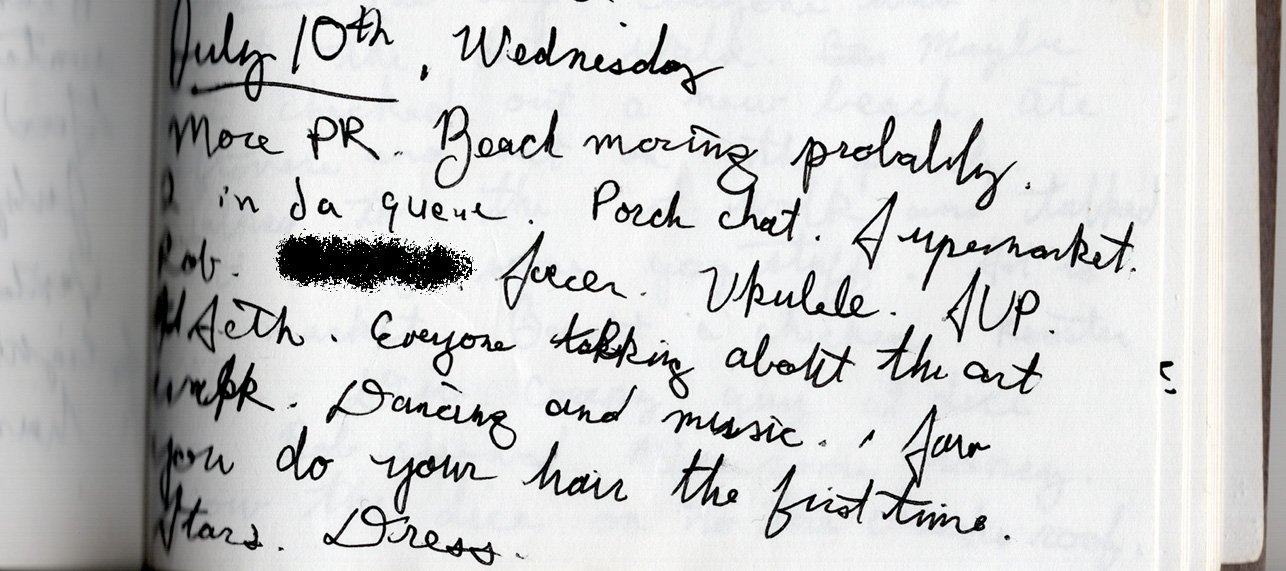 July 10th, Wednesday
More PR. Beach morning probably.
in da queue. Porch chat. Supermarket.
Rob. Soccer. Ukulele. SUP.
Seth. Everyone talking about the art
work. Dancing and music. Saw
you do your hair the first time.
Stars. Dress.